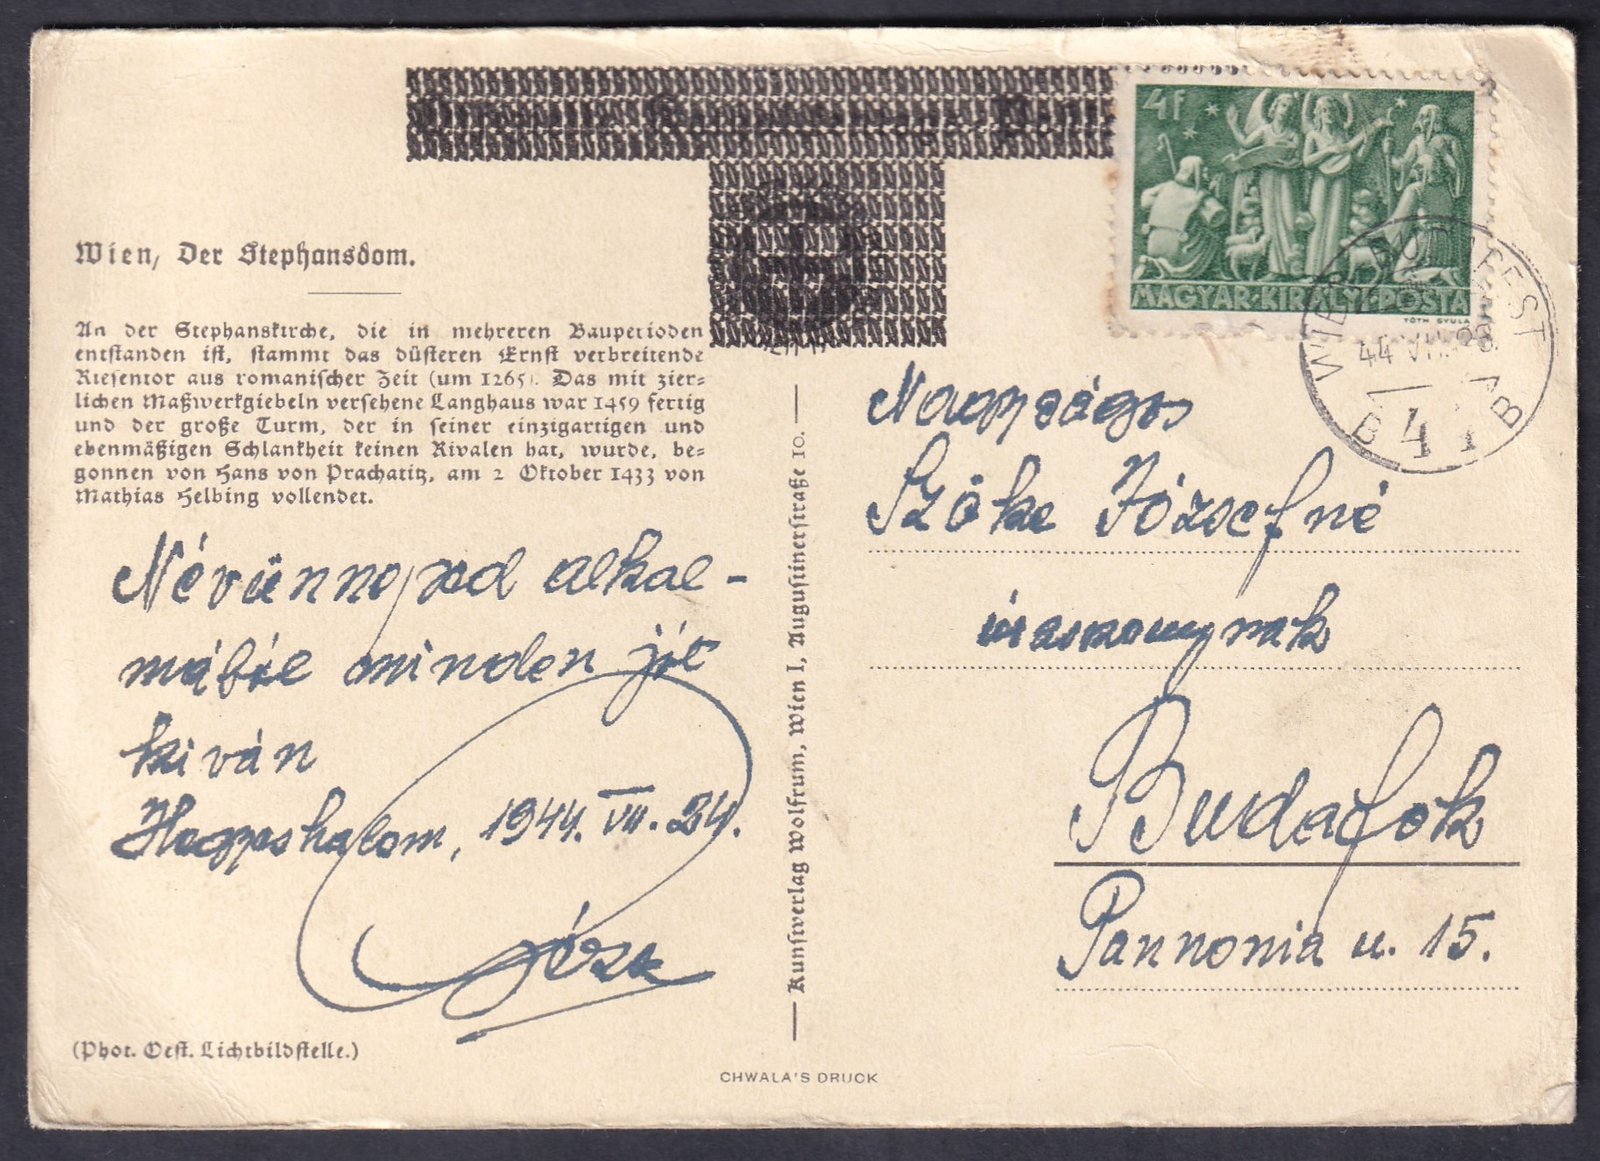 4f
MAGYAR·KIRÁLYI·POSTA
TÓTH GYULA
44 VII.
B 4
Wien, Der Stephansdom.
An der Stephanskirche, die in mehreren Bauperioden
entstanden ist, stammt das düsteren Ernst verbreitende
Riesentor aus romanischer Zeit (um 1265). Das mit zier=
lichen Maßwerkgiebeln versehene Langhaus war 1459 fertig
und der große Turm, der in seiner einzigartigen und
ebenmäßigen Schlankheit keinen Rivalen hat, wurde, be=
gonnen von Hans von Prachatitz, am 2 Oktober 1433 von
Mathias Helbing vollendet.
Névünneped alkal-
mából minden jót
kíván
Hegyeshalom, 1944. VII. 24.
Józse
(Phot. Oest. Lichtbildstelle.)
Kunstverlag Wolfrum, Wien I, Augustinerstraße 10.
CHWALA'S DRUCK
Nagyságos
Szőke Józsefné
úrasszonynak
Budafok
Pannonia u. 15.